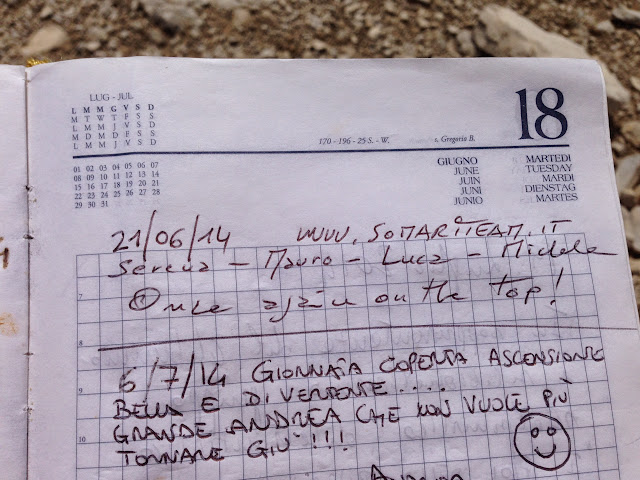 LUG - JUL
L M M G V S D
M T W T F S S
L M M J V S D
M D M D F S S
L M M J V S D
01 02 03 04 05 06 07
08 09 10 11 12 13 14
15 16 17 18 19 20 21
22 23 24 25 26 27 28
29 30 31
170 - 196 - 25 S. - W.
s. Gregorio B.
18
GIUGNO MARTEDI
JUNE TUESDAY
JUIN MARDI
JUNI DIENSTAG
JUNIO MARTES
21/06/14 www.SOMARITEAM.IT
- Mauro - Luca - Michele
Once again on the top!
7
8
6/7/14 GIORNATA COPERTA ASCENSIONE
BELLA E DIVERTENTE....
GRANDE ANDREA CHE NON VUOLE PIÙ
10
TORNARE GIÙ!!!